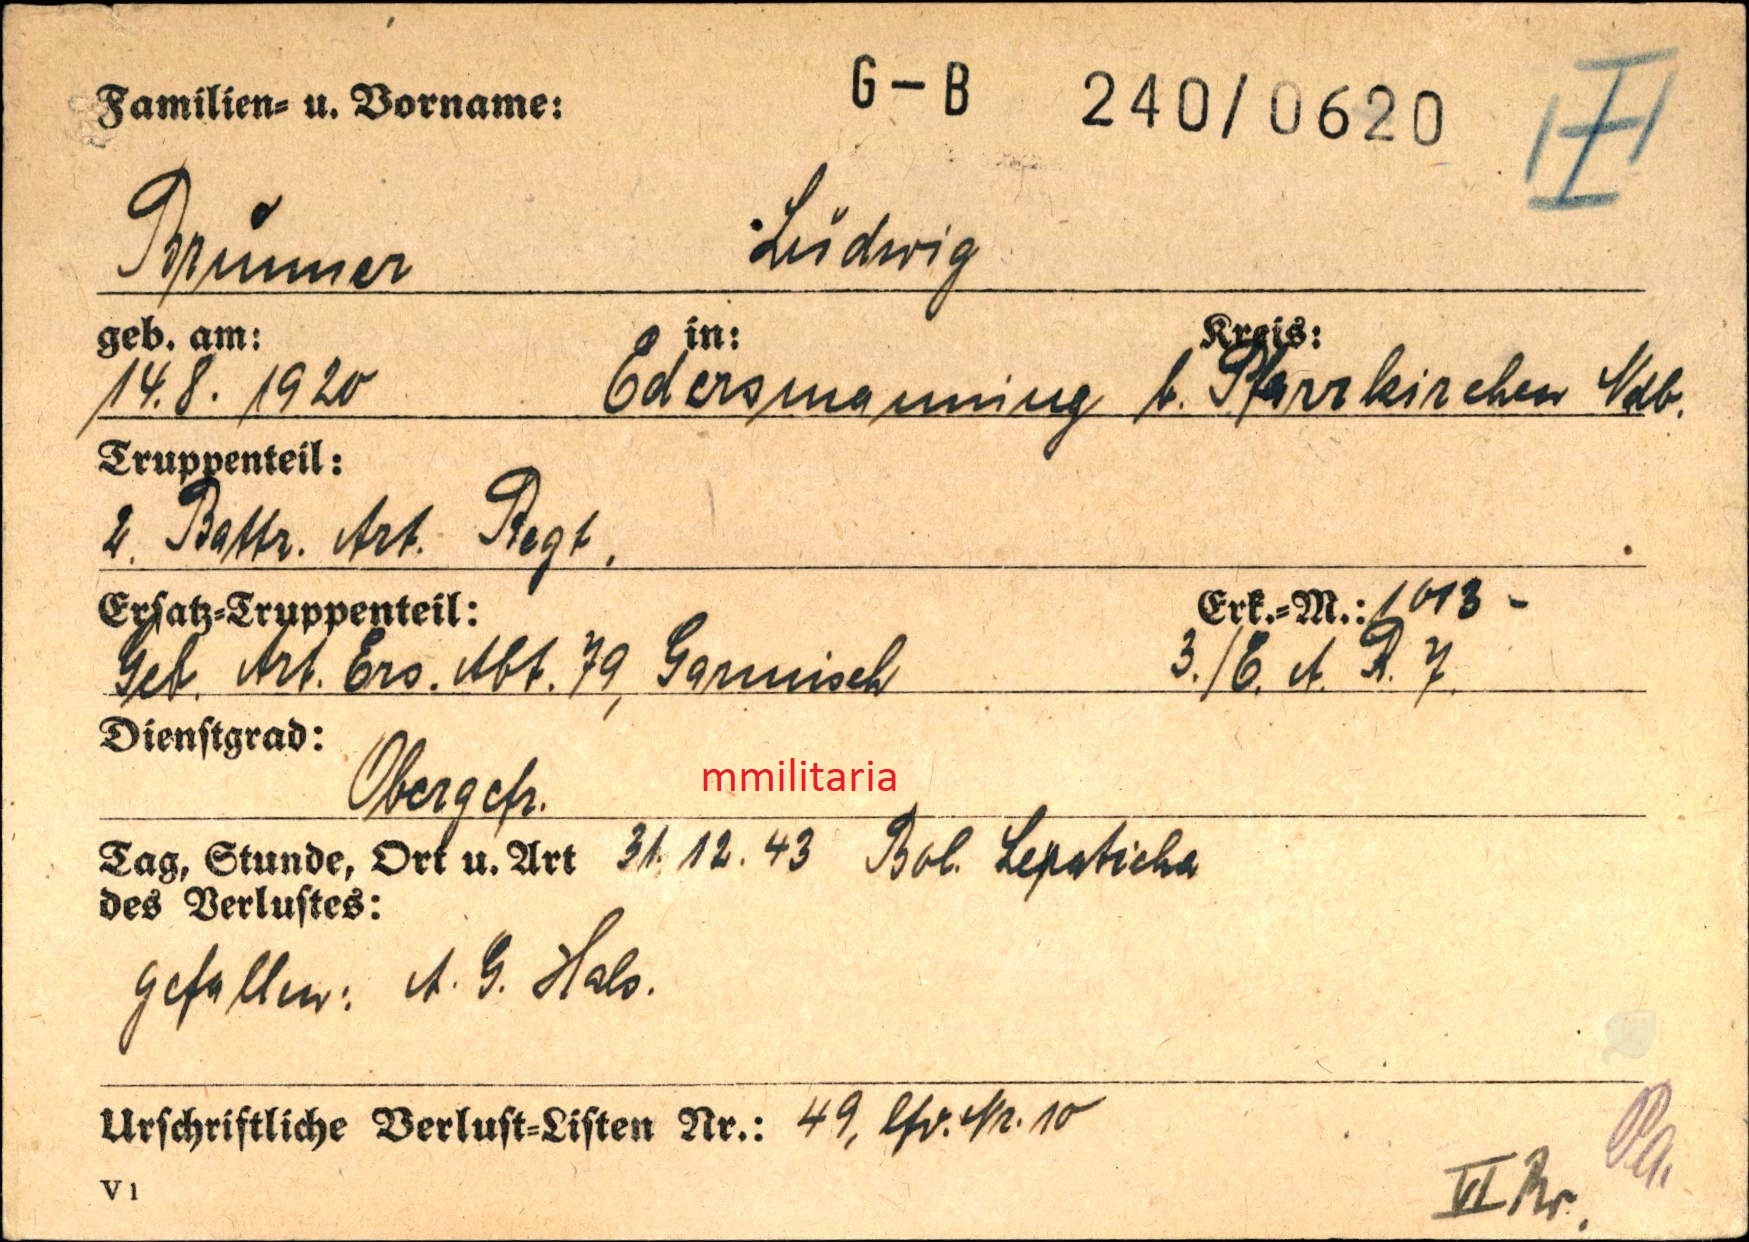 Familien- u. Vorname: G-B 240/0620
Brunner Ludwig
geb. am: in: Kreis:
14.8. 1920 Edersmanning b. Pfarrkirchen Ndb.
Truppenteil:
2. Battr. Art. Regt.
Ersatz-Truppenteil: Erk.-M.: 1013 -
Geb. Art. Ers. Abt. 79, Garmisch 3./E. A. R. 7.
Dienstgrad:
Obergefr.
mmilitaria
Tag, Stunde, Ort u. Art 31.12.43 Bol. Lepaticha
des Verlustes:
gefallen: A. G. Hals.
Urschriftliche Verlust-Listen Nr.: 49, lfd. Nr. 10
V 1
VI